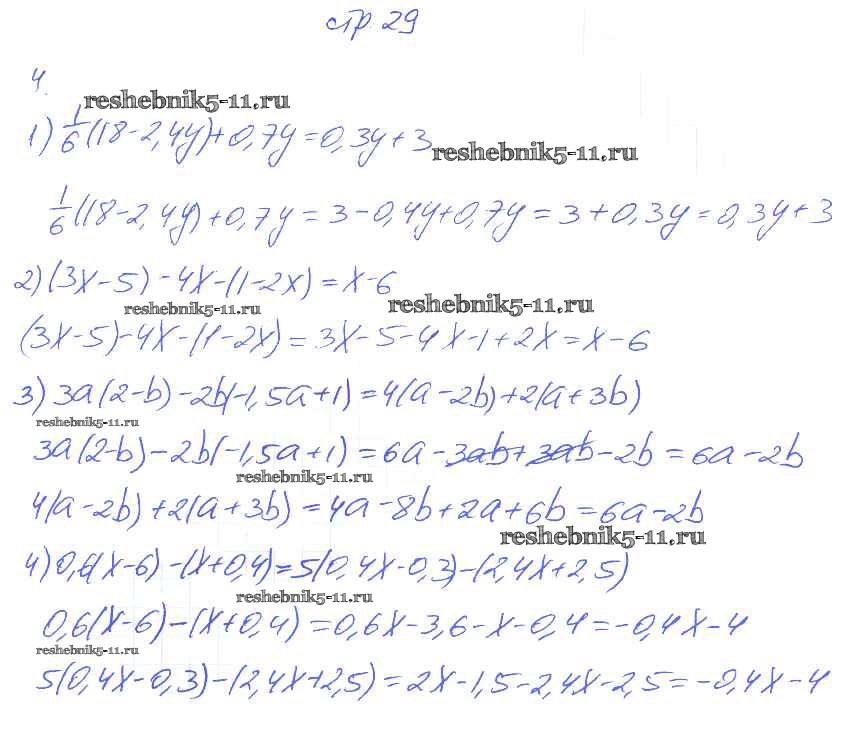 стр. 29
4.
reshebnik5-11.ru
1) 1/6(18-2,4y)+0,7y=0,3y+3
reshebnik5-11.ru
1/6(18-2,4y)+0,7y=3-0,4y+0,7y=3+0,3y=0,3y+3
2) (3x-5)-4x-(1-2x)=x-6
reshebnik5-11.ru reshebnik5-11.ru
(3x-5)-4x-(1-2x)=3x-5-4x-1+2x=x-6
3) 3a(2-b)-2b(-1,5a+1)=4(a-2b)+2(a+3b)
reshebnik5-11.ru
3a(2-b)-2b(-1,5a+1)=6a-3ab+3ab-2b=6a-2b
reshebnik5-11.ru
4(a-2b)+2(a+3b)=4a-8b+2a+6b=6a-2b
reshebnik5-11.ru
4) 0,6(x-6)-(x+0,4)=5(0,4x-0,3)-(2,4x+2,5)
reshebnik5-11.ru
0,6(x-6)-(x+0,4)=0,6x-3,6-x-0,4=-0,4x-4
reshebnik5-11.ru
5(0,4x-0,3)-(2,4x+2,5)=2x-1,5-2,4x-2,5=-0,4x-4